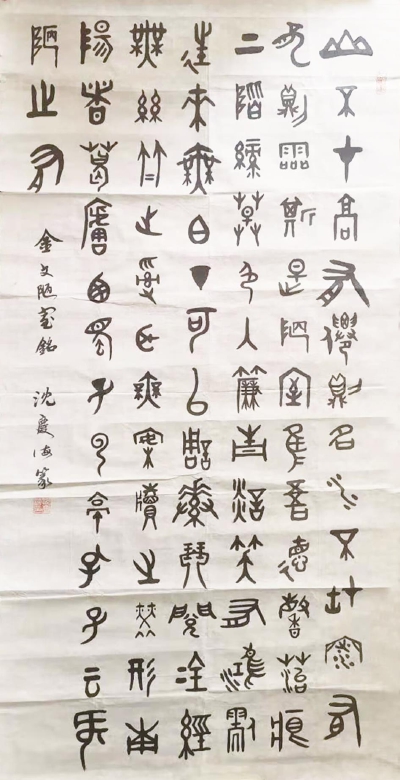 山不在高有僊則名水不在深有
龍則靈斯是陋室惟吾德馨苔痕
上階綠草色入簾青談笑有鴻儒
往來無白丁可以調素琴閱金經
無絲竹之亂耳無案牘之勞形南
陽諸葛廬西蜀子雲亭孔子云何
陋之有
金文陋室銘 沈慶海篆